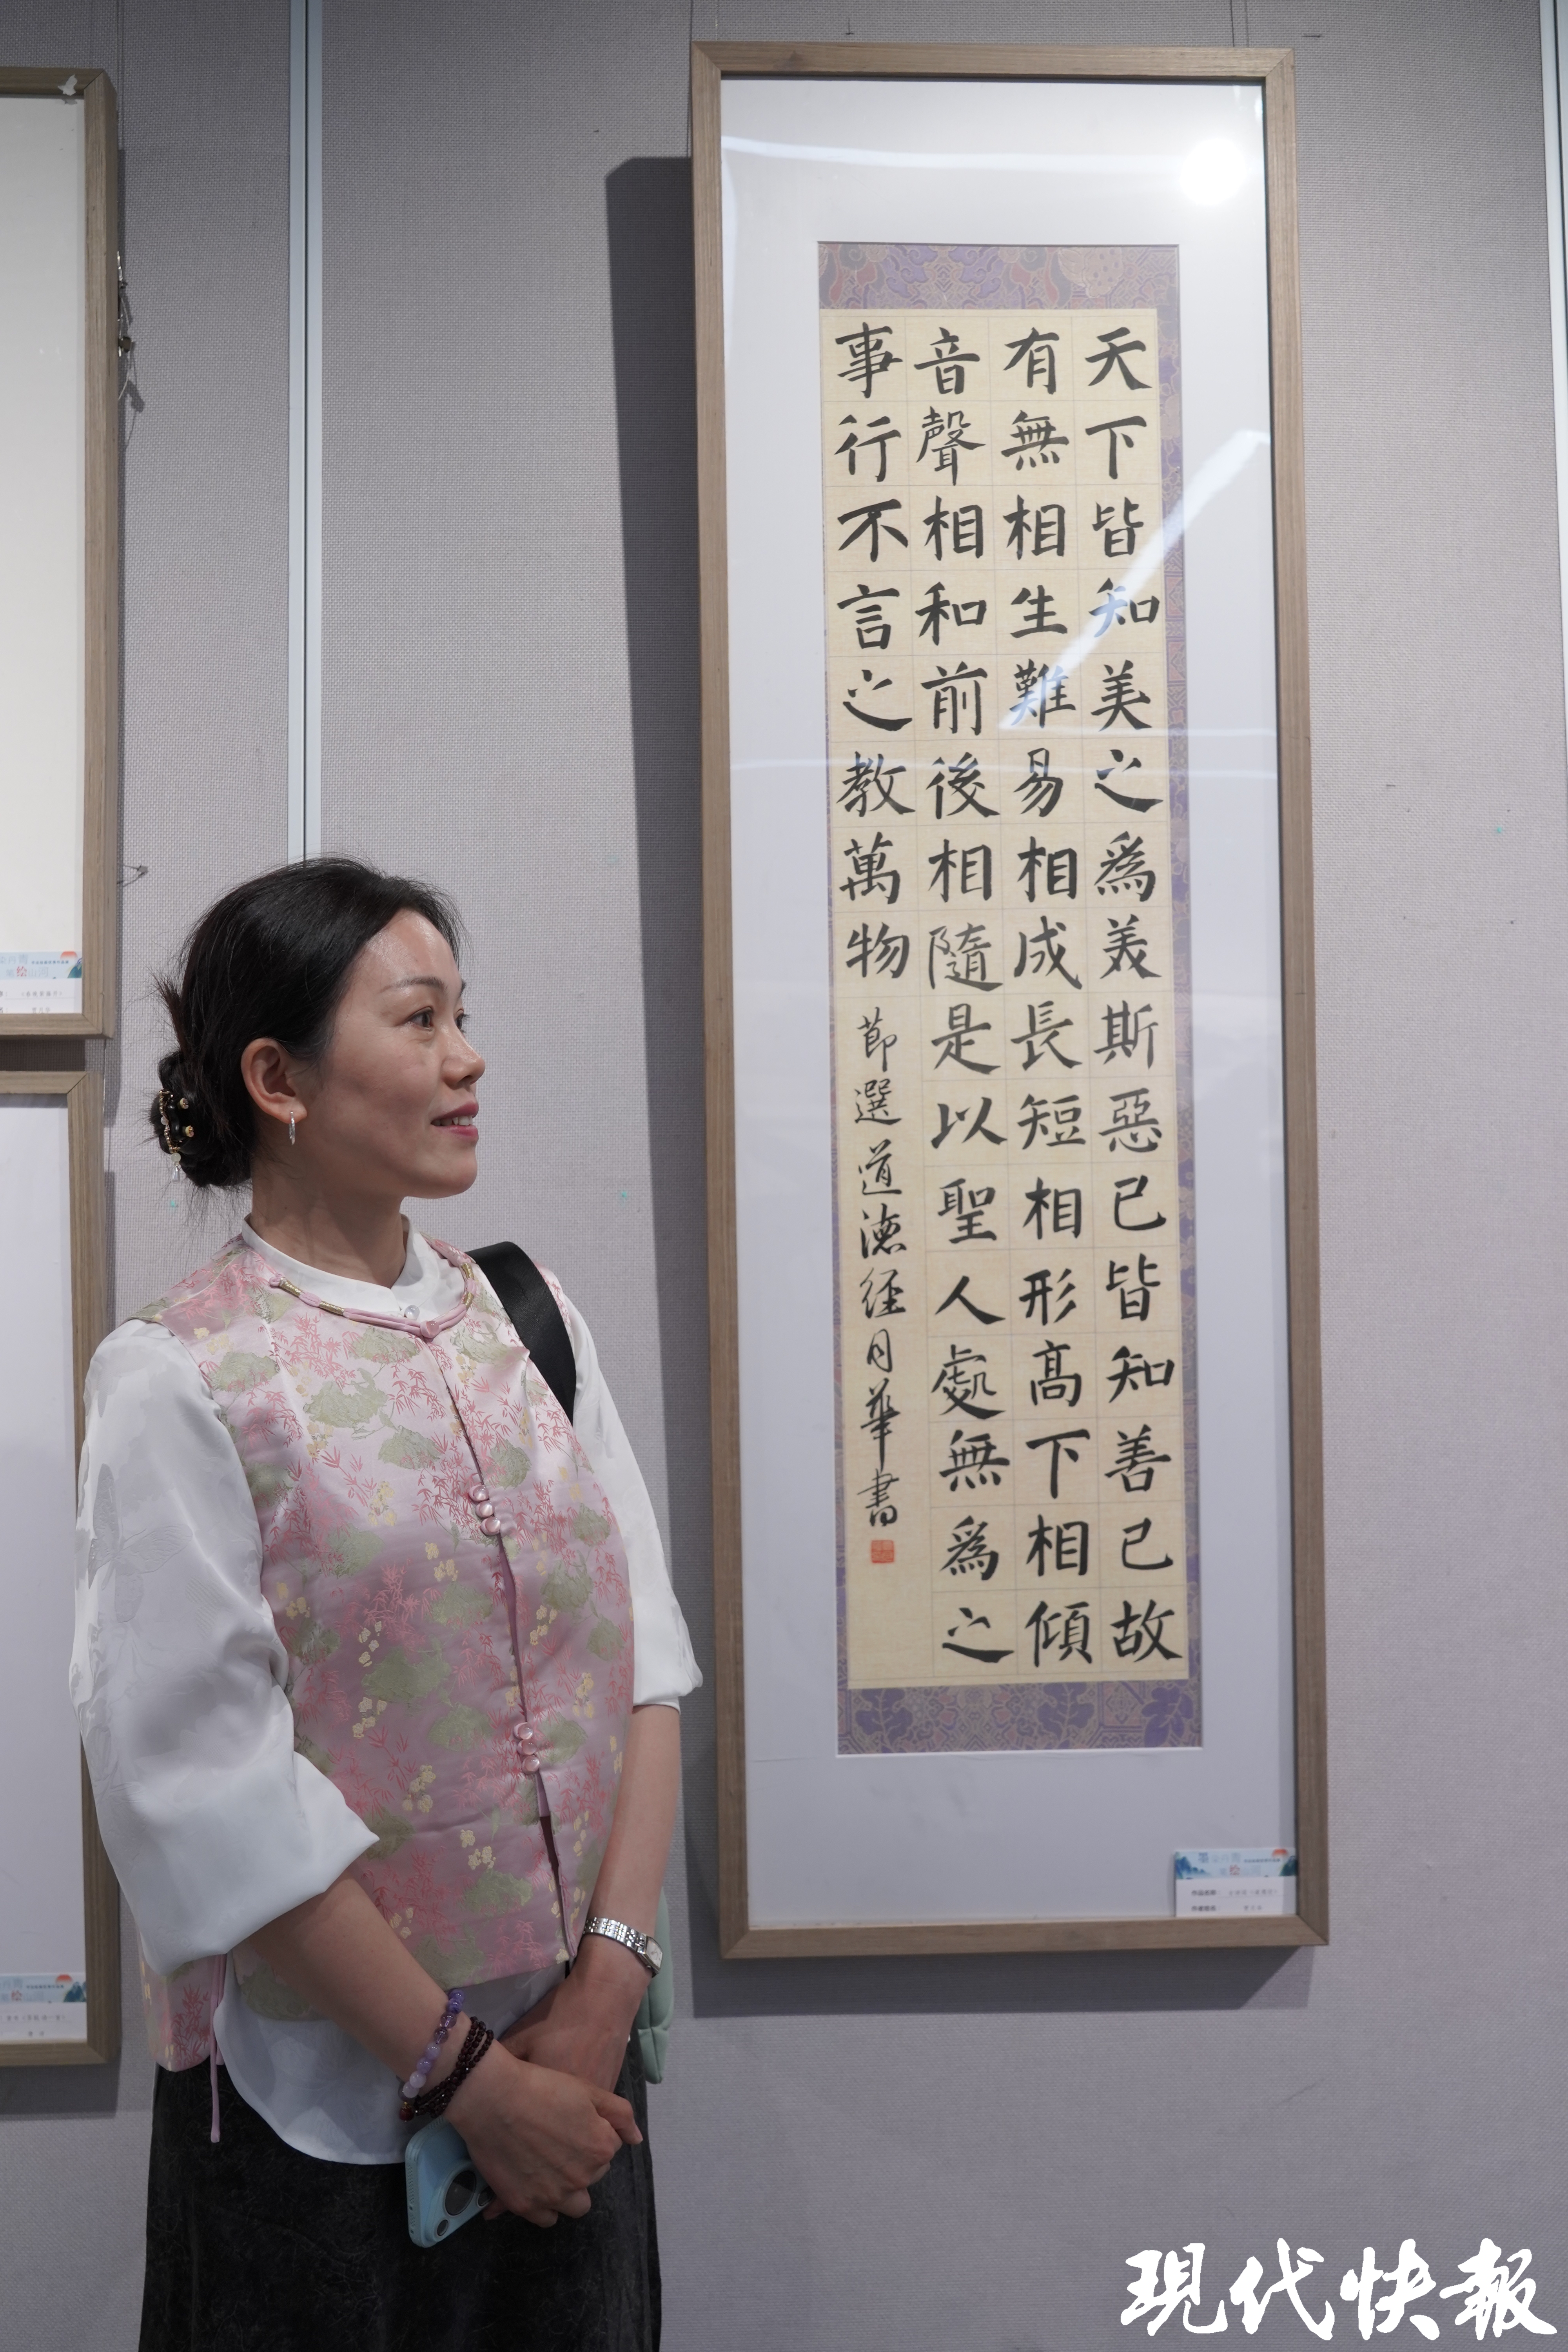 天下皆知美之為美斯惡已皆知善已故
有無相生難易相成長短相形高下相傾
音聲相和前後相隨是以聖人處無為之
事行不言之教萬物
節選道德經月華書
作品名称：
作者姓名：
現代快報